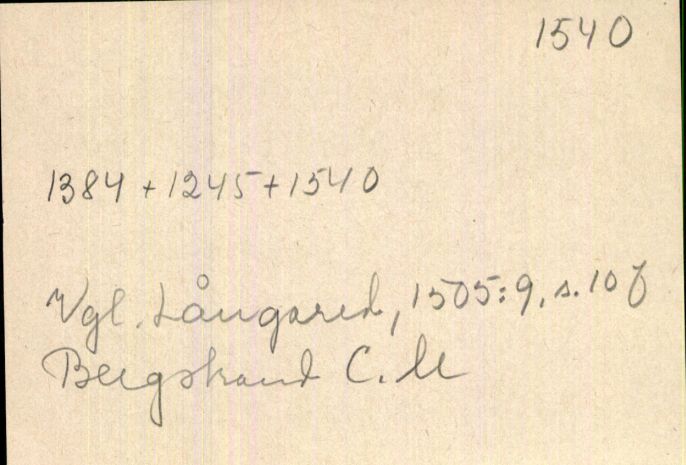 1540
1384 + 1245 + 1540
Vgl. Långared, 1505:9, s. 10 f
Bergstrand C. M